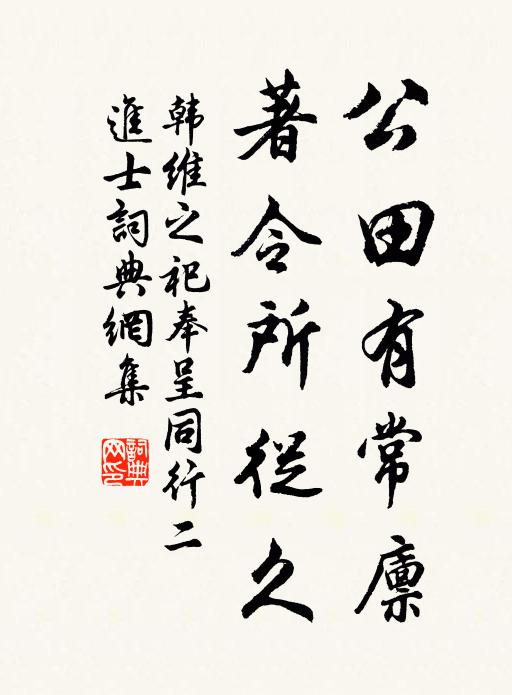 公田有常廪
著令所從久
韩維之祀奉呈同行二
進士詞典網集
詞典网印